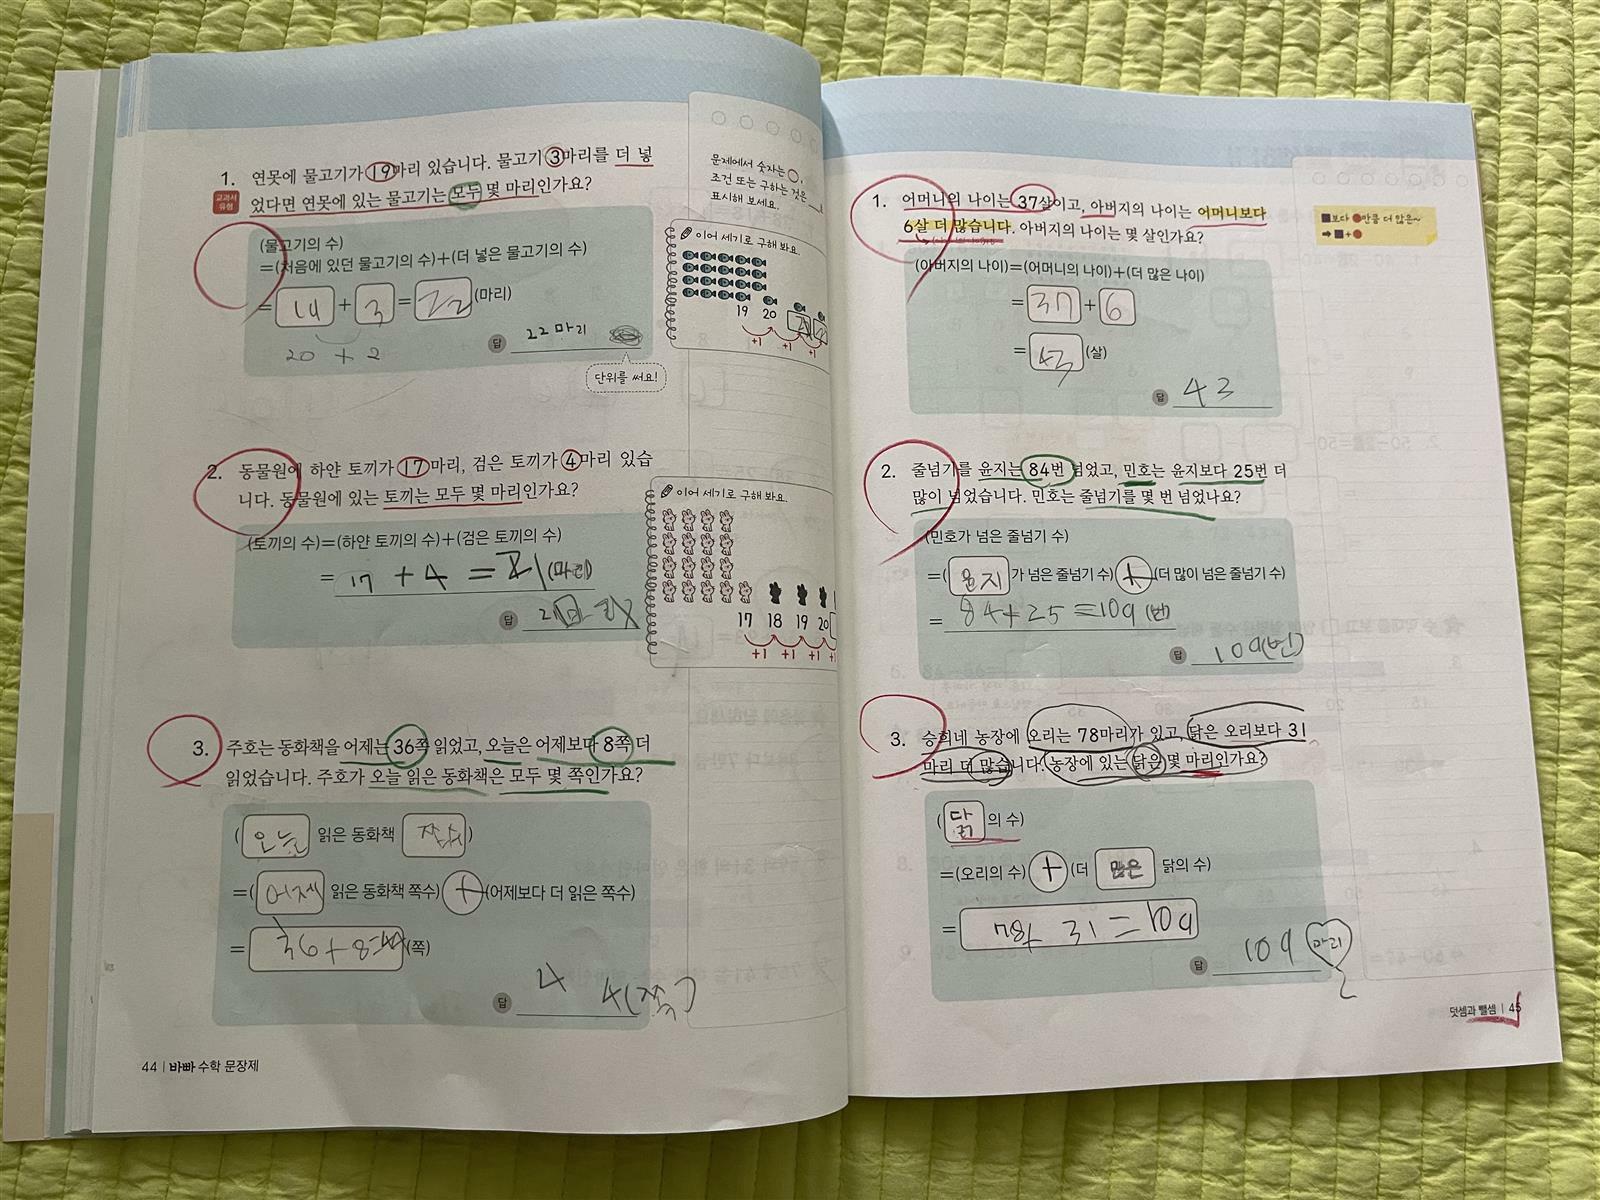 1. 연못에 물고기가 19마리 있습니다. 물고기 3마리를 더 넣
교과서 유형
었다면 연못에 있는 물고기는 모두 몇 마리인가요?
(물고기의 수)
=(처음에 있던 물고기의 수)+(더 넣은 물고기의 수)
= 19 + 3 = 22 (마리)
20 + 2
답 22마리
단위를 써요!
문제에서 숫자는 ○,
조건 또는 구하는 것은 __로
표시해 보세요.
이어 세기로 구해 봐요.
19 20
+1 +1 +1
2. 동물원에 하얀 토끼가 17마리, 검은 토끼가 4마리 있습
니다. 동물원에 있는 토끼는 모두 몇 마리인가요?
(토끼의 수)=(하얀 토끼의 수)+(검은 토끼의 수)
= 17 + 4 = 21 (마리)
답 21
이어 세기로 구해 봐요.
17 18 19 20
+1 +1 +1 +1
3. 주호는 동화책을 어제는 36쪽 읽었고, 오늘은 어제보다 8쪽 더
읽었습니다. 주호가 오늘 읽은 동화책은 모두 몇 쪽인가요?
( 오늘 읽은 동화책 쪽수 )
=( 어제 읽은 동화책 쪽수) + (어제보다 더 읽은 쪽수)
= 36+8=44 (쪽)
답 44(쪽)
44 | 바빠 수학 문장제
1. 어머니의 나이는 37살이고, 아버지의 나이는 어머니보다
6살 더 많습니다. 아버지의 나이는 몇 살인가요?
■보다 ●만큼 더 많은~
➡ ■+●
(아버지의 나이)=(어머니의 나이)+(더 많은 나이)
= 37 + 6
= 43 (살)
답 43
2. 줄넘기를 윤지는 84번 넘었고, 민호는 윤지보다 25번 더
많이 넘었습니다. 민호는 줄넘기를 몇 번 넘었나요?
(민호가 넘은 줄넘기 수)
=( 윤지 가 넘은 줄넘기 수) + (더 많이 넘은 줄넘기 수)
= 84+25=109 (번)
답 109(번)
3. 승희네 농장에 오리는 78마리가 있고, 닭은 오리보다 31
마리 더 많습니다. 농장에 있는 닭은 몇 마리인가요?
( 닭 의 수)
=(오리의 수) + (더 많은 닭의 수)
= 78+31=109
답 109 마리
덧셈과 뺄셈 | 45